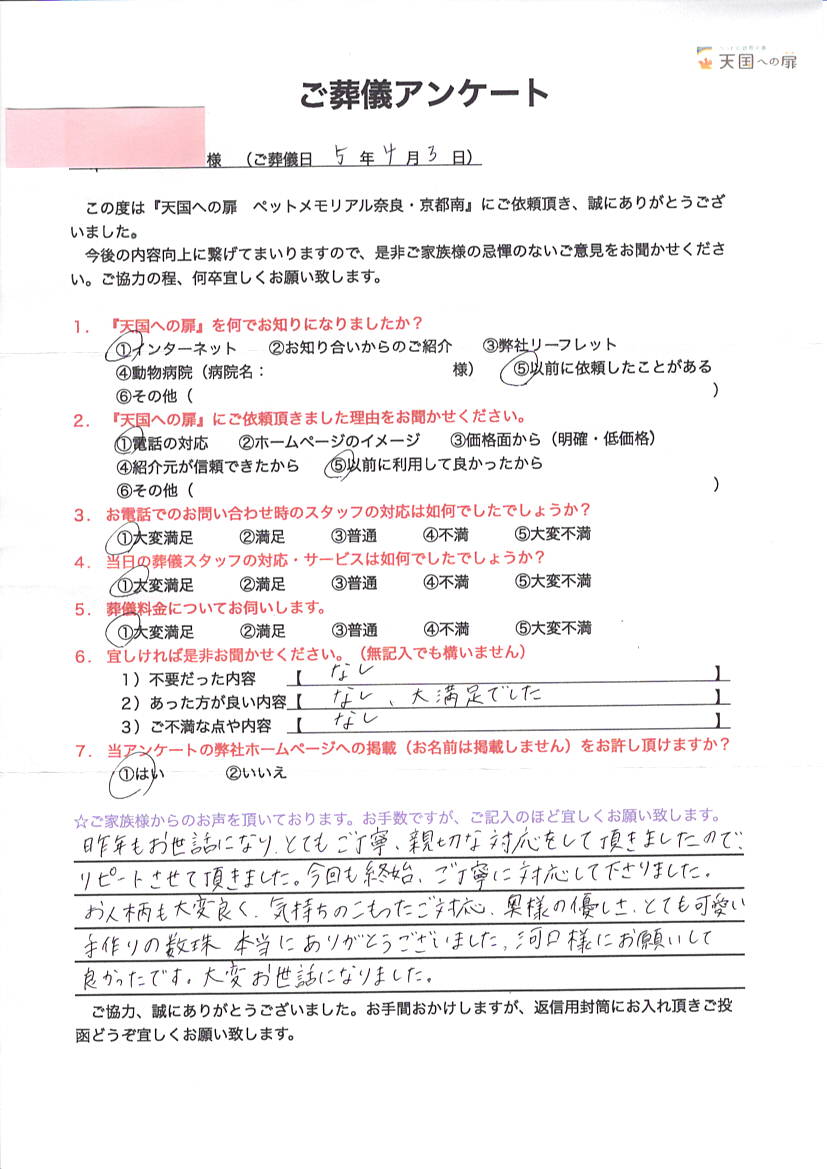 天国への扉
ご葬儀アンケート
様 （ご葬儀日 5 年 4 月 3 日）
この度は『天国への扉 ペットメモリアル奈良・京都南』にご依頼頂き、誠にありがとうござ
いました。
今後の内容向上に繋げてまいりますので、是非ご家族様の忌憚のないご意見をお聞かせくださ
い。ご協力の程、何卒宜しくお願い致します。
1． 『天国への扉』を何でお知りになりましたか？
①インターネット ②お知り合いからのご紹介 ③弊社リーフレット
④動物病院（病院名： 様） ⑤以前に依頼したことがある
⑥その他（ ）
2． 『天国への扉』にご依頼頂きました理由をお聞かせください。
①電話の対応 ②ホームページのイメージ ③価格面から（明確・低価格）
④紹介元が信頼できたから ⑤以前に利用して良かったから
⑥その他（ ）
3． お電話でのお問い合わせ時のスタッフの対応は如何でしたでしょうか？
①大変満足 ②満足 ③普通 ④不満 ⑤大変不満
4． 当日の葬儀スタッフの対応・サービスは如何でしたでしょうか？
①大変満足 ②満足 ③普通 ④不満 ⑤大変不満
5． 葬儀料金についてお伺いします。
①大変満足 ②満足 ③普通 ④不満 ⑤大変不満
6． 宜しければ是非お聞かせください。（無記入でも構いません）
1）不要だった内容 【 なし 】
2）あった方が良い内容【 なし、大満足でした 】
3）ご不満な点や内容 【 なし 】
7． 当アンケートの弊社ホームページへの掲載（お名前は掲載しません）をお許し頂けますか？
①はい ②いいえ
☆ご家族様からのお声を頂いております。お手数ですが、ご記入のほど宜しくお願い致します。
昨年もお世話になり、とてもご丁寧、親切な対応をして頂きましたので、
リピートさせて頂きました。今回も終始、ご丁寧に対応して下さりました。
お人柄も大変良く、気持ちのこもったご対応、奥様の優しさ、とても可愛い
手作りの数珠 本当にありがとうございました。河口様にお願いして
良かったです。大変お世話になりました。
ご協力、誠にありがとうございました。お手間おかけしますが、返信用封筒にお入れ頂きご投
函どうぞ宜しくお願い致します。